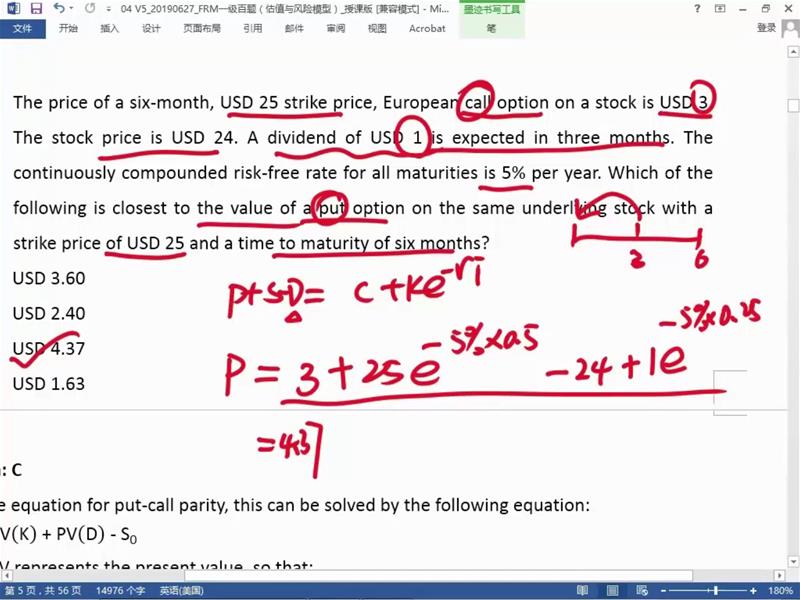 04 V5_20190627_FRM一级百题（估值与风险模型）_授课版 [兼容模式] - Mi...
墨迹书写工具
文件 开始 插入 设计 页面布局 引用 邮件 审阅 视图 Acrobat 笔 登录
The price of a six-month, USD 25 strike price, European call option on a stock is USD 3.
The stock price is USD 24. A dividend of USD 1 is expected in three months. The
continuously compounded risk-free rate for all maturities is 5% per year. Which of the
following is closest to the value of a put option on the same underlying stock with a
strike price of USD 25 and a time to maturity of six months?
3 6
USD 3.60
USD 2.40
USD 4.37
USD 1.63
P+S-D= C+Ke^-rT
P = 3+25e^-5%×0.5 -24+1e^-5%×0.25
=4.37
: C
e equation for put-call parity, this can be solved by the following equation:
V(K) + PV(D) - S₀
V represents the present value, so that:
第 5 页，共 56 页 14976 个字 英语(美国) 180%